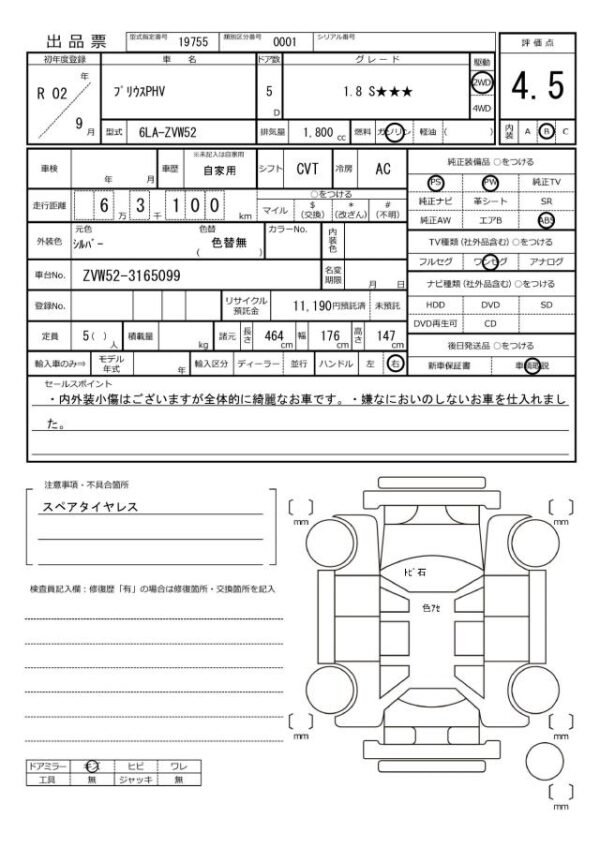 出品票 型式指定番号 19755 類別区分番号 0001 シリアル番号
評価点
4.5
内装 A B C
初年度登録 車名 ドア数 グレード 駆動
R 02 年 9 月 ﾌﾟﾘｳｽPHV 5 D 1.8 S★★★ 2WD 4WD
型式 6LA-ZVW52 排気量 1,800 cc 燃料 ガソリン 軽油 ( )
車検 年 月 車歴 ※未記入は自家用 自家用 シフト CVT 冷房 AC
走行距離 6 万 3 千 1 0 0 km ○をつける マイル $ (交換) * (改ざん) # (不明)
外装色 元色 ｼﾙﾊﾞｰ 色替 色替無 ( ) カラーNo. 内装色
車台No. ZVW52-3165099 名変期限 月 日
登録No. リサイクル預託金 11,190円預託済 未預託
定員 5( ) 人 積載量 kg 諸元 長さ 464 cm 幅 176 cm 高さ 147 cm
輸入車のみ⇒ モデル年式 年 輸入区分 ディーラー 並行 ハンドル 左 右
純正装備品 ○をつける
PS PW 純正TV
純正ナビ 革シート SR
純正AW エアB ABS
TV種類 (社外品含む) ○をつける
フルセグ ワンセグ アナログ
ナビ種類 (社外品含む) ○をつける
HDD DVD SD
DVD再生可 CD
後日発送品 ○をつける
新車保証書 車輌取説
セールスポイント
・内外装小傷はございますが全体的に綺麗なお車です。・嫌なにおいのしないお車を仕入れまし
た。
注意事項・不具合箇所
スペアタイヤレス
検査員記入欄：修復歴「有」の場合は修復箇所・交換箇所を記入
ドアミラー キズ ヒビ ワレ
工具 無 ジャッキ 無
〔 〕 mm
〔 〕 mm
ﾄﾋﾞ石
色ｱｾ
〔 〕 mm
〔 〕 mm
〔 〕 mm